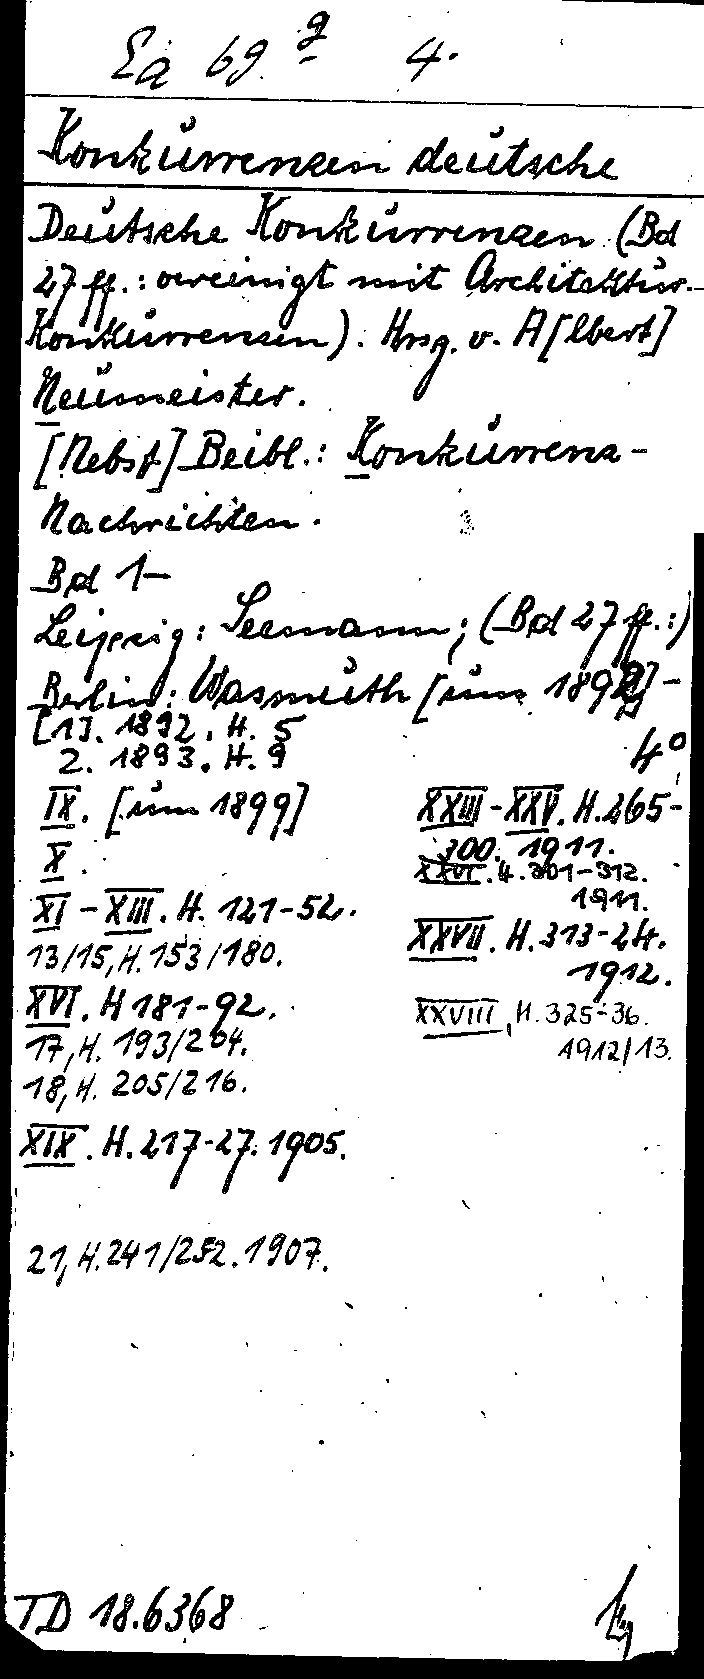 Ea 69 g 4.
Konkurrenzen deutsche
Deutsche Konkurrenzen (Bd
27 ff.: vereinigt mit Architektur-
Konkurrenzen). Hrsg. v. A[lbert]
Neumeister.
[Nebst] Beibl.: Konkurrenz-
Nachrichten.
Bd 1-
Leipzig: Seemann; (Bd 27 ff.:)
Berlin: Wasmuth [um 1892]-
4°
[1]. 1892. H. 5
2. 1893. H. 9
IX. [um 1899]
X.
XI-XIII. H. 121-52.
13/15, H. 153/180.
XVI. H 181-92.
17, H. 193/204.
18, H. 205/216.
XIX. H. 217-27. 1905.
21, H. 241/252. 1907.
XXIII-XXV. H. 265-
300. 1911.
XXVI. H. 301-312.
1911.
XXVII. H. 313-24.
1912.
XXVIII, H. 325-36.
1912/13.
TD 18.6368